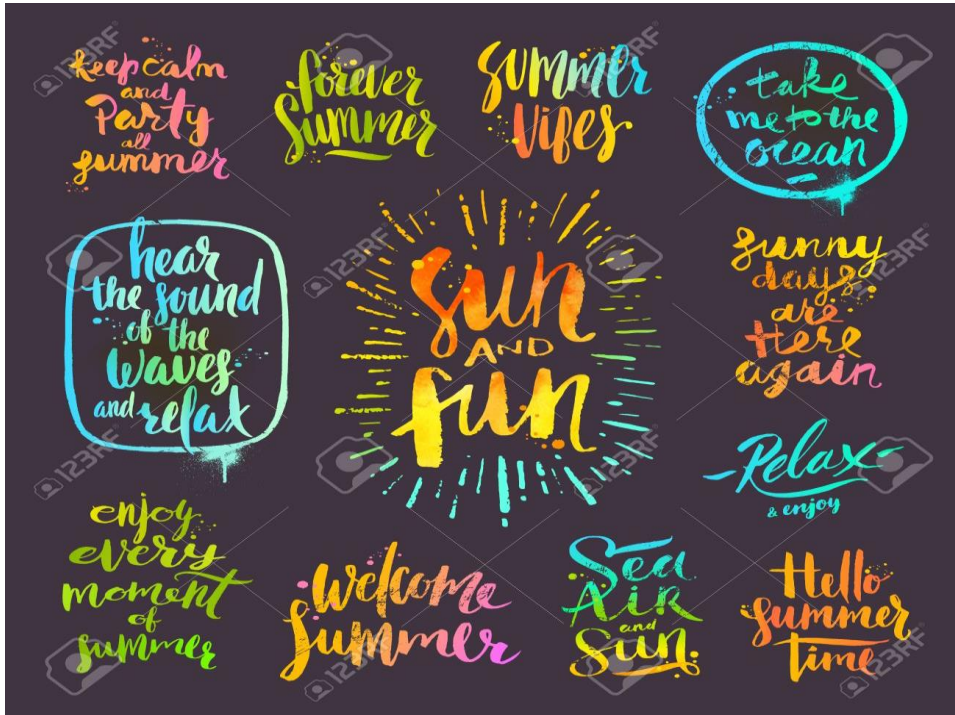 keep calm
and
Party
all
summer
forever
Summer
SUMMER
Vibes
take
me to the
ocean
hear
the sound
of the
waves
and relax
sun
AND
fun
sunny
days
are
Here
again
Relax
& enjoy
enjoy
every
moment
of
summer
Welcome
Summer
Sea
AiR
and
Sun
Hello
summer
time
123RF